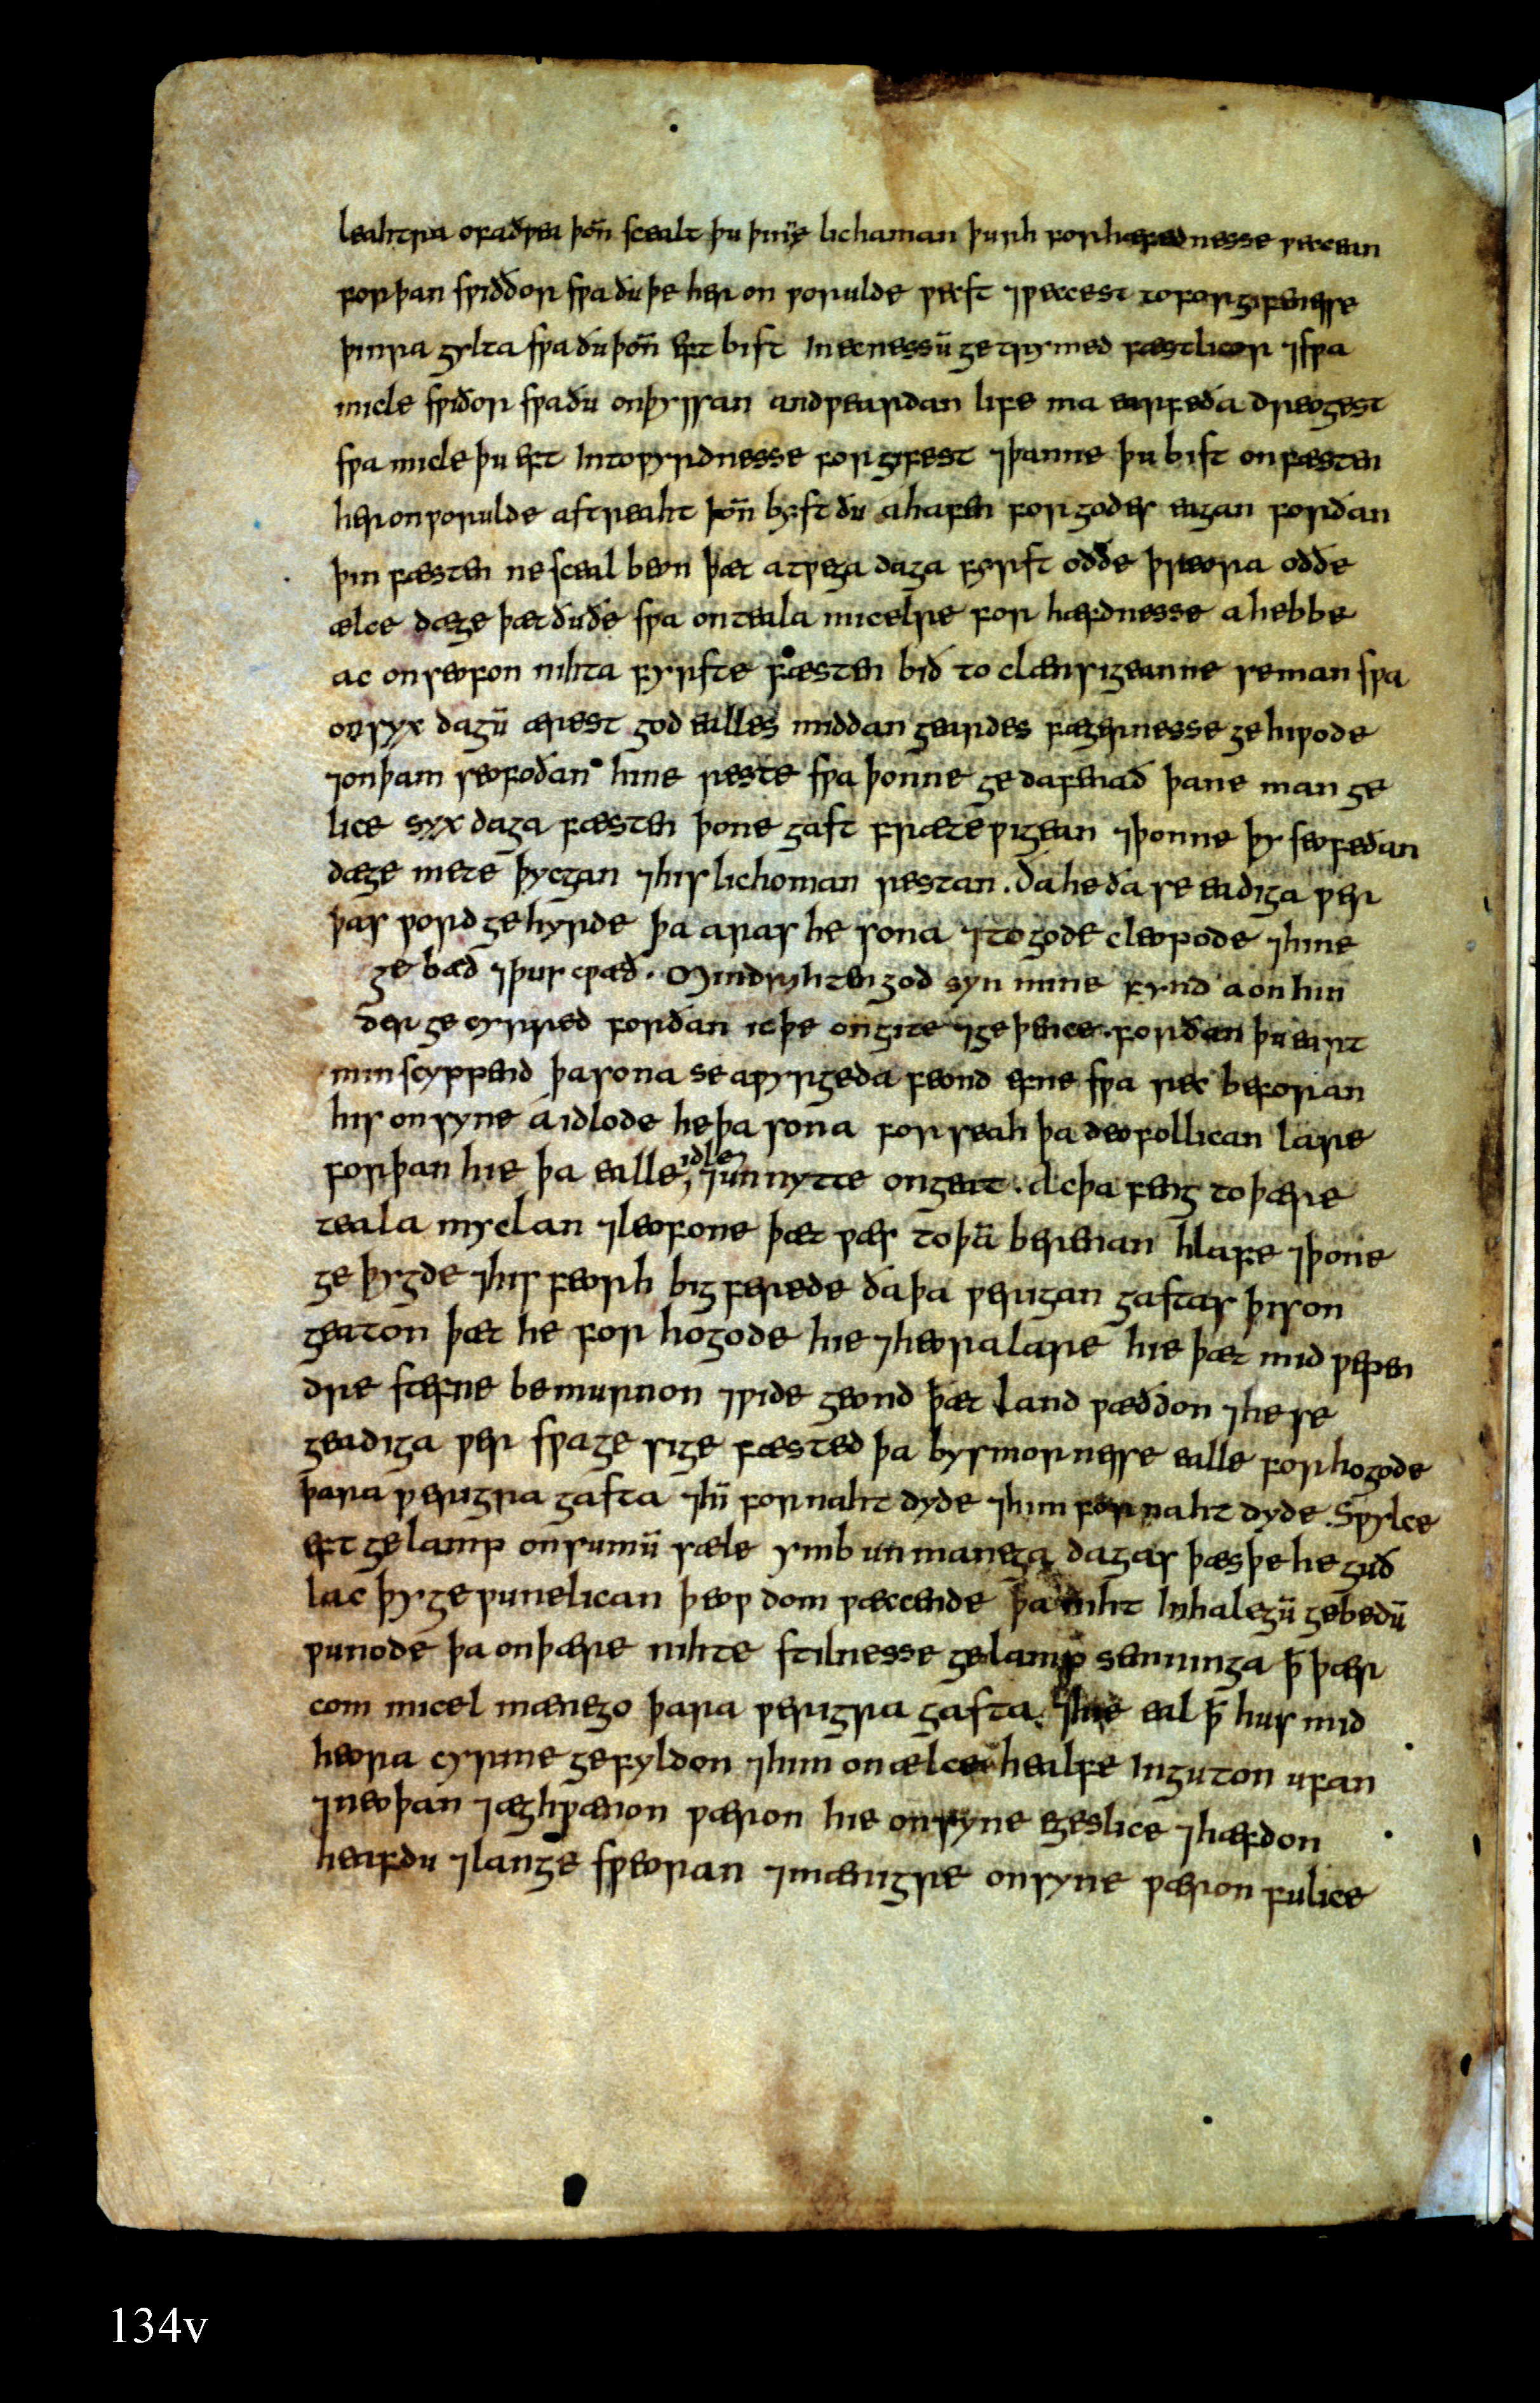 leahtra of aðwea þoñ scealt þu þinne lichaman þurh forhæfednesse weccan
forþan swiððor swa ðu þe her on worulde wecst ⁊ wecest to forgifenesse
þinra gylta swa ðu þoñ eft bist in ecnessū getrymed fæstlicor ⁊ swa
micle swiðor swa ðu on þyssan andweardan life ma earfeða dreogest
swa micle þu eft in towyrdnesse forgifest ⁊ þanne þu bist on fæsten
her on worulde astreaht þoñ byst ðu ahafen for godes eagan forðan
þin fæsten ne sceal beon þæt a twega daga fyrst oððe þreora oððe
ælce dæge þæt ðu ðe swa on teala micelre forhæfdnesse ahebbe
ac on seofon nihta fyrste fæsten bið to clænsigeanne se man swa
on syx dagū ærest god ealles middangeardes fægernesse gehiwode
⁊ on þam seofoðan hine reste swa þonne gedafenað þane man ge
lice syx daga fæsten þone gast frætewigean ⁊ þonne þy seofeðan
dæge mete þycgan ⁊ his lichoman restan. ða he ða se eadiga wer
þas word gehyrde þa aras he sona ⁊ to gode cleopode ⁊ hine
gebæd ⁊ þus cwæð. Min dryhten god syn mine fynd a on hin
der gecyrred forðan ic þe ongite ⁊ geþence. forðan þu eart
min scyppend þa sona se awyrgeda feond efne swa rec beforan
his onsyne aidlode he þa sona forseah þa deofollican lare
forþan hie þa ealle, idle, ⁊ unnytte ongeat. Ac þa feng to þære
teala myclan ⁊ leofone þæt wæs to þā berenan hlafe ⁊ þone
geþygde ⁊ his feorh bigferede ða þa werigan gastas þis on
geaton þæt he forhogode hie ⁊ heora lare hie þæt mid wepen
dre stefne bemurnon ⁊ wide geond þæt land wæððon ⁊ he se
geadiga wer swa gesigefæsted þa bysmornesse ealle forhogode
þara werigra gasta ⁊ hī for naht dyde ⁊ him for naht dyde. Swylce
eft gelamp on sumū sæle ymb unmanega dagas þæs þe he guð
lac þy gewunelican þeowdom wæccende þa niht in halegū gebedū
wunode þa on þære nihte stilnesse gelamp semninga ꝥ þær
com micel mænego þara werigra gasta. ⁊ hie eal ꝥ hus mid
heora cyrme gefyldon ⁊ him on ælce healfe inguton ufan
⁊ neoþan ⁊ æghwænon wæron hie onsyne egeslice ⁊ hæfdon
heafdu ⁊ lange sweoran ⁊ mænigre onsyne wæron fulice
134v